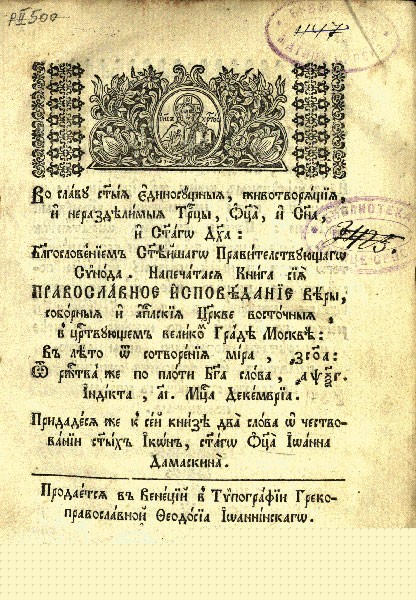 РII 500
447
Во сла́ву ст҃ы́ѧ є҆диносꙋ́щныѧ, животворѧ́щїѧ,
и҆ нераздѣли́мыѧ Трⷪ҇цы, Ѻ҆ц҃а̀, и҆ Сн҃а,
и҆ Ст҃а́гѡ Дх҃а:
Бл҃гослове́нїемъ Ст҃ѣ́йшагѡ Прави́тельствꙋющагѡ
Сѷно́да. Напеча́тасѧ Кни́га сїѧ̀
ПРАВОСЛА́ВНОЕ И҆СПОВѢ́ДАНЇЕ Вѣ́ры,
собо́рныѧ и҆ а҆пⷭ҇лскїѧ Цр҃кве восто́чныѧ,
в̾ црⷭ҇твующемъ вели́комъ Гра́дѣ Москвѣ̀:
Въ лѣ́то ѿ сотворе́нїѧ мі́ра, ҂зсо҃а:
Ѿ Рж҃тва́ же по пло́ти Бг҃а сло́ва, ҂аѱѯ҃г.
І҆нді́кта, а҃і. Мцⷭ҇а Деке́мврїа.
Придаде́сѧ же к̾ се́й кни́зѣ два̀ сло́ва ѡ҆ чество-
ва́нїи ст҃ы́хъ І҆кѡ́нъ, ст҃а́гѡ Ѻ҆ц҃а̀ І҆ѡа́нна
Дамаскина̀.
Продае́тсѧ въ Вене́цїй в̾ Тѷпогра́фїи Греко-
правосла́вной Ѳеодо́сїа І҆ѡанні́нскагѡ.